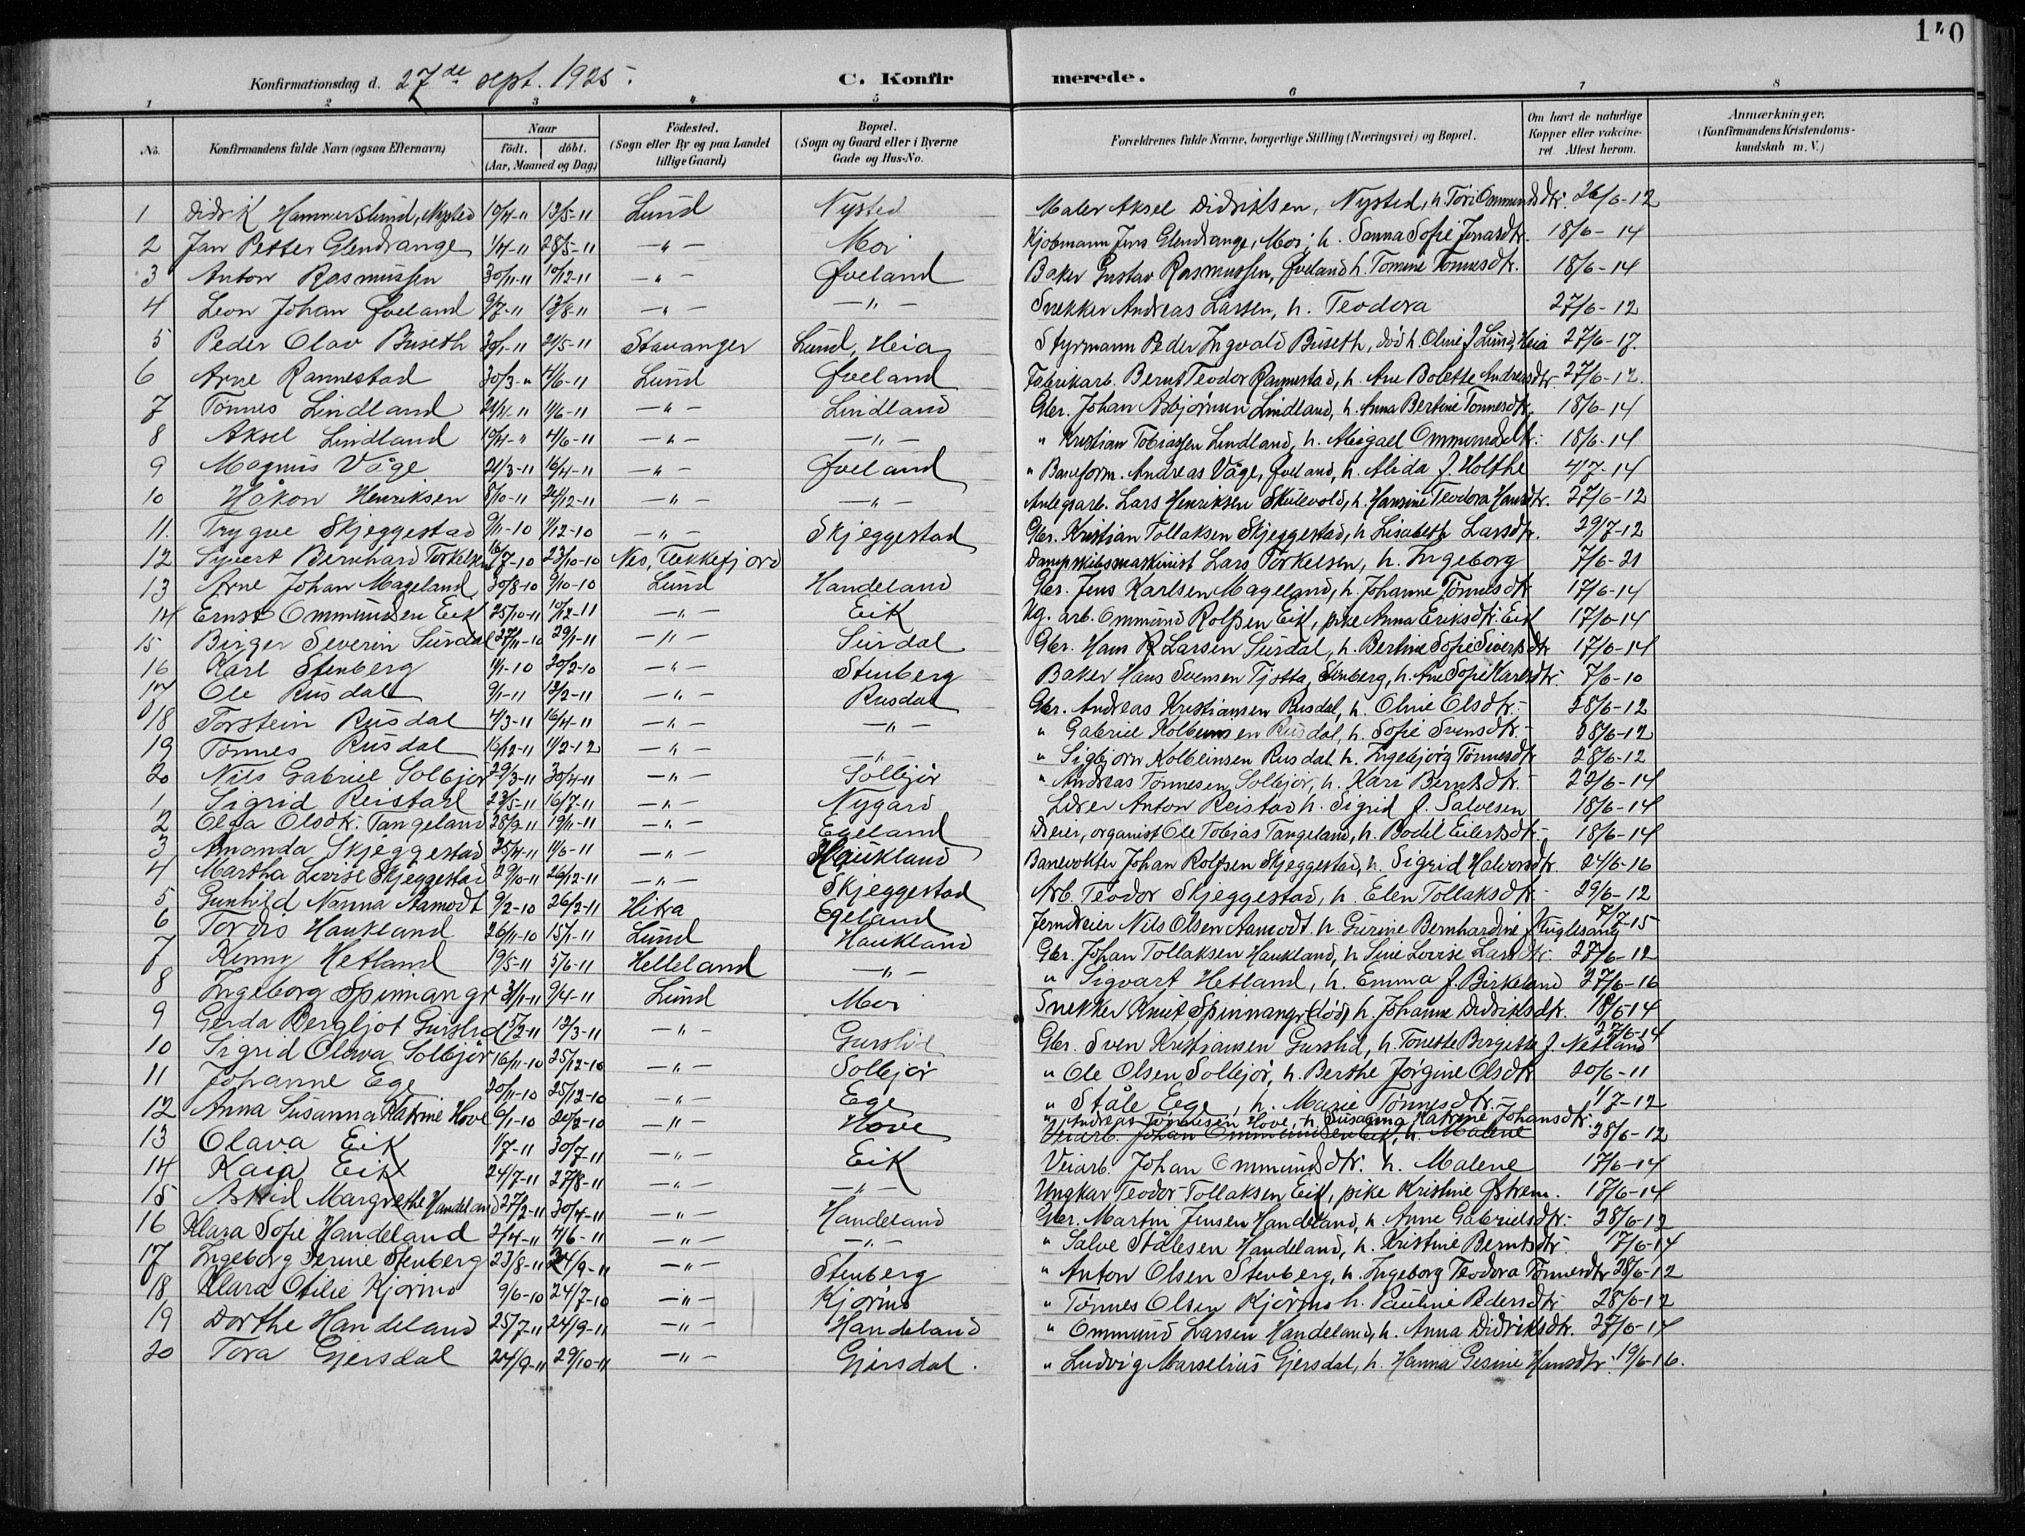 110
Konfirmationsdag d. 27de sept. 1925. C. Konfirmerede.
1 2 3 4 5 6 7 8
No. Konfirmandens fulde Navn (ogsaa Efternavn) Naar født. døbt. (Aar, Maaned og Dag) Fødested. (Sogn eller By og paa Landet tillige Gaard) Bopæl. (Sogn og Gaard eller i Byerne Gade og Hus-No. Forældrenes fulde Navne, borgerlige Stilling (Næringsvei) og Bopæl. Om havt de naturlige Kopper eller vakcineret. Attest herom. Anmærkninger. (Konfirmandens Kristendomskundskab m. V.)
1 Didrik Hammerslund, Nysted 10/4-11 13/5-11 Lund Nysted Maler Aksel Didriksen, Nysted, h. Tori Ommundsdtr. 26/6-12
2 Jan Petter Glendrange 1/4-11 28/5-11 -"- Moi Kjøbmann Jens Glendrange, Moi, h. Sanna Sofie Jonasdtr. 18/6-14
3 Anton Rasmussen 30/11-11 10/12-11 -"- Øveland Baker Gustav Rasmussen, Øveland h. Tomine Tønnesdtr. 18/6-14
4 Leon Johan Øveland 9/7-11 13/8-11 -"- -"- Snekker Andreas Larsen, h. Teodora 27/6-12
5 Peder Olav Buseth 30/1-11 21/5-11 Stavanger Lund, Heia Styrmann Peder Ingvald Buseth, død h. Oline f. Lund, Heia 27/6-17.
6 Arne Rannestad 30/3-" 4/6-11 Lund Øveland Fabrikarb. Bernt Teodor Rannestad, h. Ane Bolette Andreasdtr. 27/6-12.
7 Tønnes Lindland 21/11-11 11/6-11 -"- Lindland Gbr. Johan Asbjørnsen Lindland, h. Anna Bertine Tønnesdtr. 18/6-14
8 Aksel Lindland 10/4-" 4/6-11 -"- -"- " Kristian Tobiassen Lindland, h. Abigael Ommundsdtr. 18/6-14
9 Magnus Våge 21/3-11 16/4-11 -"- Øveland " Baneform. Andreas Våge, Øveland, h. Alida f. Holthe 4/7-14
10 Håkon Henriksen 8/10-11 24/12-11 -"- -"- Anlegsarb. Lars Henriksen Skulevold, h. Hansine Teodora Hansdtr. 27/6-12
11. Trygve Skjeggestad 9/11-10 11/12-10 -"- Skjeggestad Gbr. Kristian Tollaksen Skjeggestad, h. Lisabeth Larsdtr. 29/7-12
12 Syvert Bernhard Torkelsen 16/7-10 23/10-10 Nes, Flekkefjord Dampskibsmaskinist Lars Torkelsen, h. Ingeborg 7/6-21
13 Arne Johan Mageland 30/8-10 9/10-10 Lund Handeland Gbr. Jens Karlsen Mageland, h. Johanne Tønnesdtr. 17/6-14
14 Ernst Ommundsen Eik 25/10-11 10/12-11 -"- Eik Ug. arb. Ommund Rolfsen Eik, pike Anna Eriksdtr. Eik 17/6-14
15 Birger Severin Surdal 27/11-10 29/1-11 -"- Surdal Gbr. Hans R. Larsen Surdal, h. Bertine Sofie Sivertsdtr 17/6-14
16 Karl Stenberg 1/1-10 20/2-10 -"- Stenberg Baker Hans Svensen Tjotta, Stenberg, h. Ane Sofie Karlsdtr. 7/6-10
17 Ole Rusdal 9/1-11 12/2-11 -"- Rusdal Gbr. Andreas Kristiansen Rusdal, h. Oline Olsdtr. 28/6-12
18 Torstein Rusdal 4/3-11 16/4-11 -"- -"- " Gabriel Kolbeinsen Rusdal, h. Sofie Svensdtr. 28/6-12
19 Tønnes Rusdal 16/12-11 11/2-12 -"- -"- " Sigbjorn Kolbeinsen Rusdal h. Ingebjørg Tønnesdtr 28/6-12
20 Nils Gabriel Solbjør 29/3-11 30/4-11 -"- Solbjør " Andreas Tønnesen Solbjør, h. Kari Berntsdtr. 22/6-14
1 Sigrid Reistad 23/5-11 16/7-11 -"- Nygård Lærer Anton Reistad h. Sigrid f. Salvesen 18/6-14
2 Olga Olsdtr. Tangeland 28/9-11 19/11-11 -"- Egeland Dreier, organist Ole Tobias Tangeland, h. Bodil Eilertsdtr. 18/6-14
3 Amanda Skjeggestad 25/4-11 11/6-11 -"- Haukland Banevokter Johan Rolfsen Skjeggestad, h. Sigrid Halvorsdtr. 24/6-16
4 Martha Lovise Skjeggestad 29/10-11 26/12-11 -"- Skjeggestad Arb. Teodor Skjeggestad, h. Elen Tollaksdtr. 29/6-12
5 Gunhild Nanna Aamodt 9/2-10 26/2-11 Hitra Egeland Jerndreier Nils Olsen Aamodt. h. Gurine Bernhardine f. Kuglesang 7/7-15
6 Tordis Haukland 26/11-10 15/1-11 Lund Haukland Gbr. Johan Tollaksen Haukland, h. Sine Lovise Larsdtr. 27/6-12
7 Kenny Hetland 19/5-11 5/6-11 Helleland -"- " Sigvart Hetland, h. Emma f. Birkeland 27/6-16
8 Ingeborg Spinnangr 31/1-11 9/4-11 Lund Moi Snekker Knut Spinnangr (død) h. Johanne Didriksdtr. 18/6-14
9 Gerda Bergljot Gurslid 1/2-11 12/3-11 -"- Gurslid Gbr. Sven Kristiansen Gurslid, h. Tonette Birgitte f. Netland 27/6-14
10 Sigrid Olava Solbjør 16/11-10 25/12-10 -"- Solbjør " Ole Olsen Solbjør, h. Berthe Jørgine Olsdtr 20/6-11
11 Johanne Ege 20/11-10 25/12-10 -"- Ege " Ståle Ege, h. Marie Tønnesdtr. 1/7-12
12 Anna Susanna Katrine Hove 6/1-10 20/2-10 -"- Hove " Andreas Tønnesen Hove, h. Susanna Katrine Johansdtr. 28/6-12
Veiarb. Johan Ommundsen Eik, h. Malene
13 Olava Eik 1/7-11 30/7-11 -"- Eik Veiarb. Johan Ommundsdtr. h. Malene 17/6-14
14 Kaia Eik 24/7-11 27/8-11 -"- -"- Ungkar Teodor Tollaksen Eik, pike Kristine Østrem. 17/6-14
15 Astrid Margrethe Handeland 27/2-11 30/4-11 -"- Handeland Gbr. Martin Jensen Handeland, h. Anne Gabrielsdtr. 28/6-12
16 Klara Sofie Handeland 2/4-11 4/6-11 -"- -"- " Salve Stålesen Handeland, h. Kristine Berntsdtr. 17/6-14
17 Ingeborg Serine Stenberg 23/8-11 24/9-11 -"- Stenberg " Anton Olsen Stenberg, h. Ingeborg Teodora Tønnesdtr 28/6-12
18 Klara Otilie Kjørmo 9/6-10 24/7-10 -"- Kjørmo " Tønnes Olsen Kjørmo h. Pauline Pedersdtr 28/6-12
19 Dorthe Handeland 25/7-11 24/9-11 -"- Handeland " Ommund Larsen Handeland, h. Anna Didriksdtr. 28/6-14
20 Tora Gjersdal 24/9-11 29/10-11 -"- Gjersdal. " Ludvig Marselius Gjersdal, h. Hanna Gesine Hansdtr. 19/6-16.